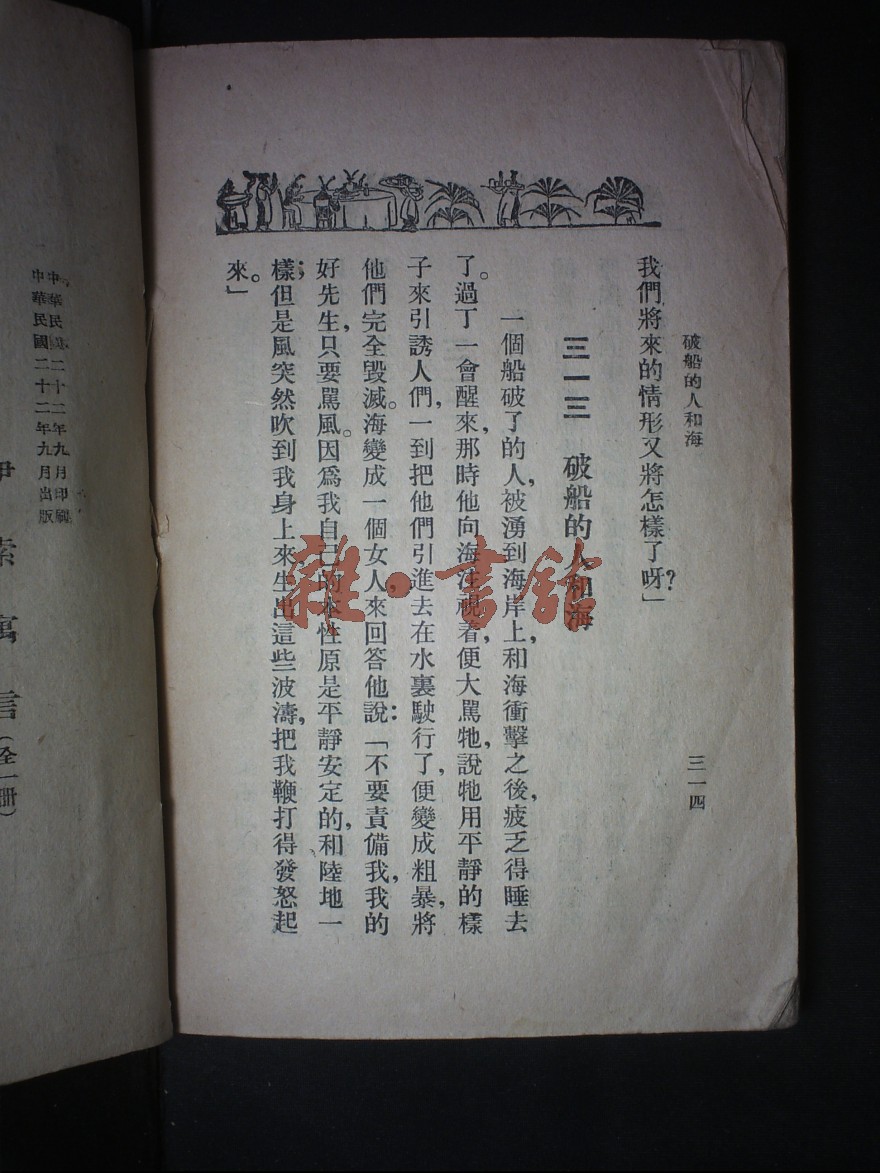 破船的人和海
三一四
我們將來的情形又將怎樣了呀?」
三一三 破船的人和海
一個船破了的人,被湧到海岸上,和海衝擊之後,疲乏得睡去
了。過了一會醒來,那時他向海注視着,便大罵牠,說牠用平靜的樣
子來引誘人們,一到把他們引進去在水裏駛行了,便變成粗暴,將
他們完全毀滅。海變成一個女人來回答他說:「不要責備我,我的
好先生,只要罵風。因爲我自己的本性原是平靜安定的,和陸地一
樣;但是風突然吹到我身上來生出這些波濤,把我鞭打得發怒起
來。」
中華民國二十二年九月印刷
中華民國二十二年九月出版
伊索寓言(全一冊)
雜·書館